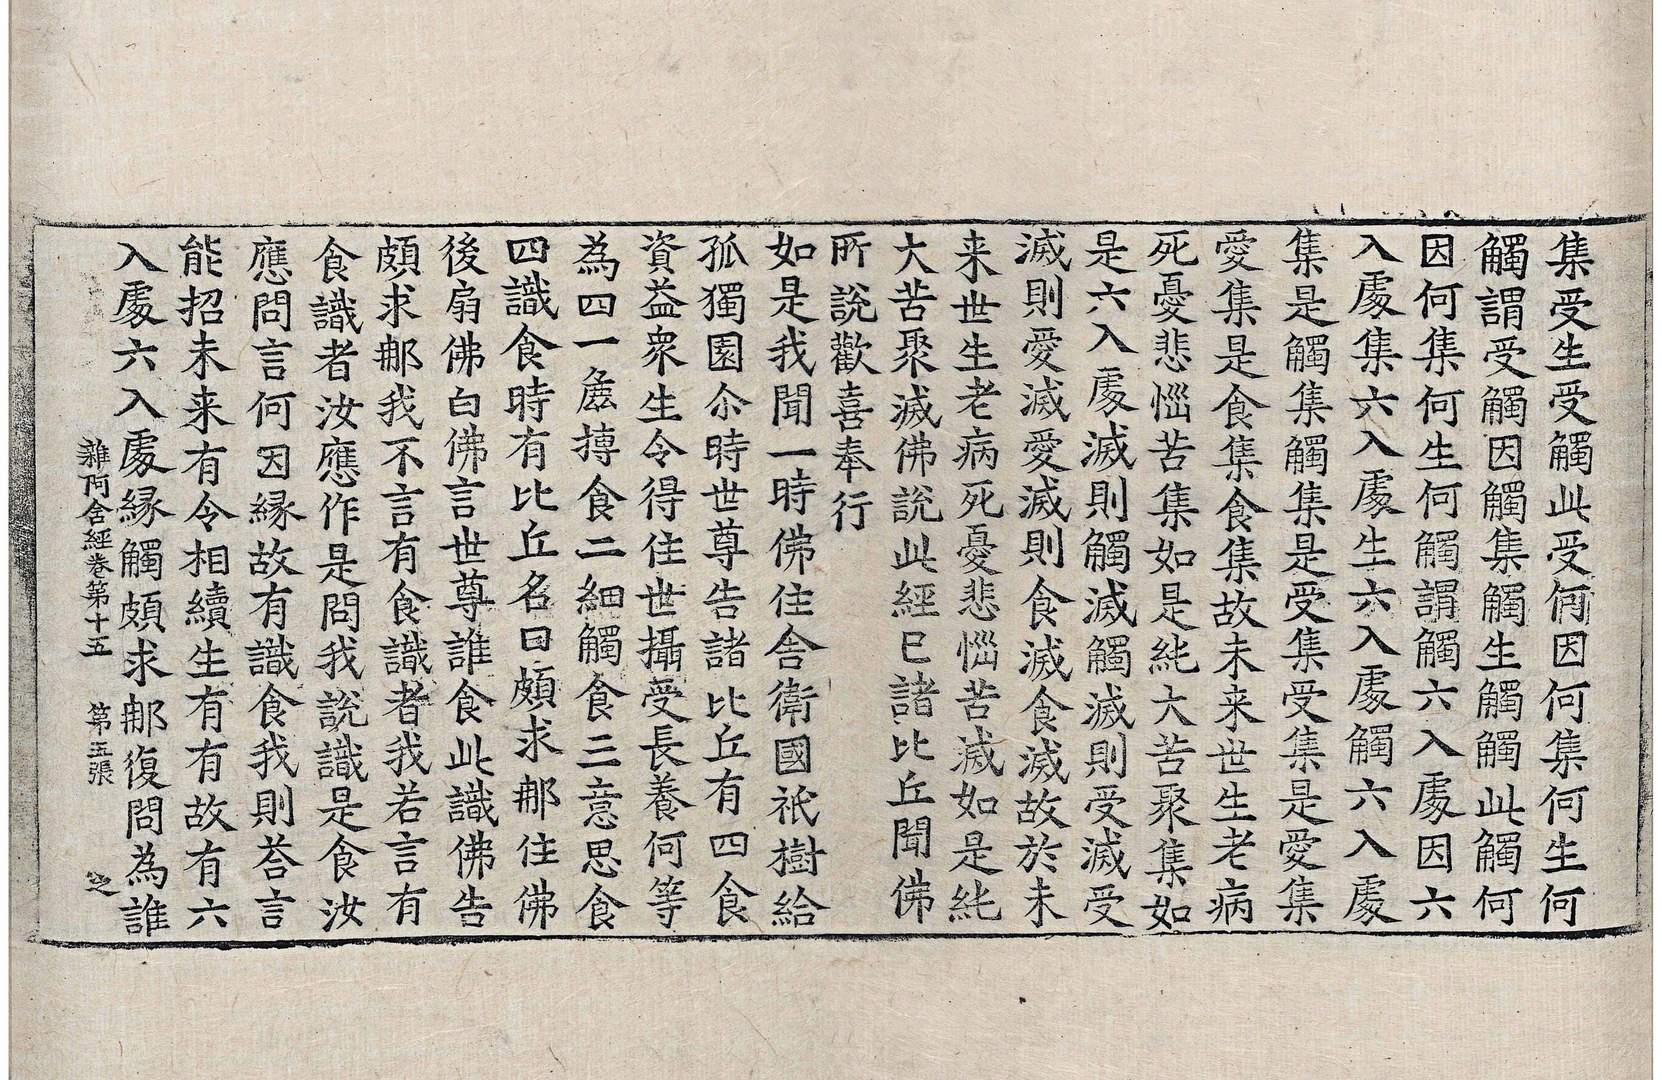 集受生受觸此受何因何集何生何
觸謂受觸因觸集觸生觸觸此觸何
因何集何生何觸謂觸六入處因六
入處集六入處生六入處觸六入處
集是觸集觸集是受集受集是愛集
愛集是食集食集故未来世生老病
死憂悲惱苦集如是純大苦聚集如
是六入處滅則觸滅觸滅則受滅受
滅則愛滅愛滅則食滅食滅故於未
来世生老病死憂悲惱苦滅如是純
大苦聚滅佛說此經已諸比丘聞佛
所說歡喜奉行
如是我聞一時佛住舍衛國祇樹給
孤獨園尒時世尊告諸比丘有四食
資益衆生令得住世攝受長養何等
為四一麁摶食二細觸食三意思食
四識食時有比丘名曰頗求那住佛
後扇佛白佛言世尊誰食此識佛告
頗求那我不言有食識者我若言有
食識者汝應作是問我說識是食汝
應問言何因緣故有識食我則荅言
能招未来有令相續生有有故有六
入處六入處緣觸頗求那復問為誰
雜阿含經卷第十五 第五張